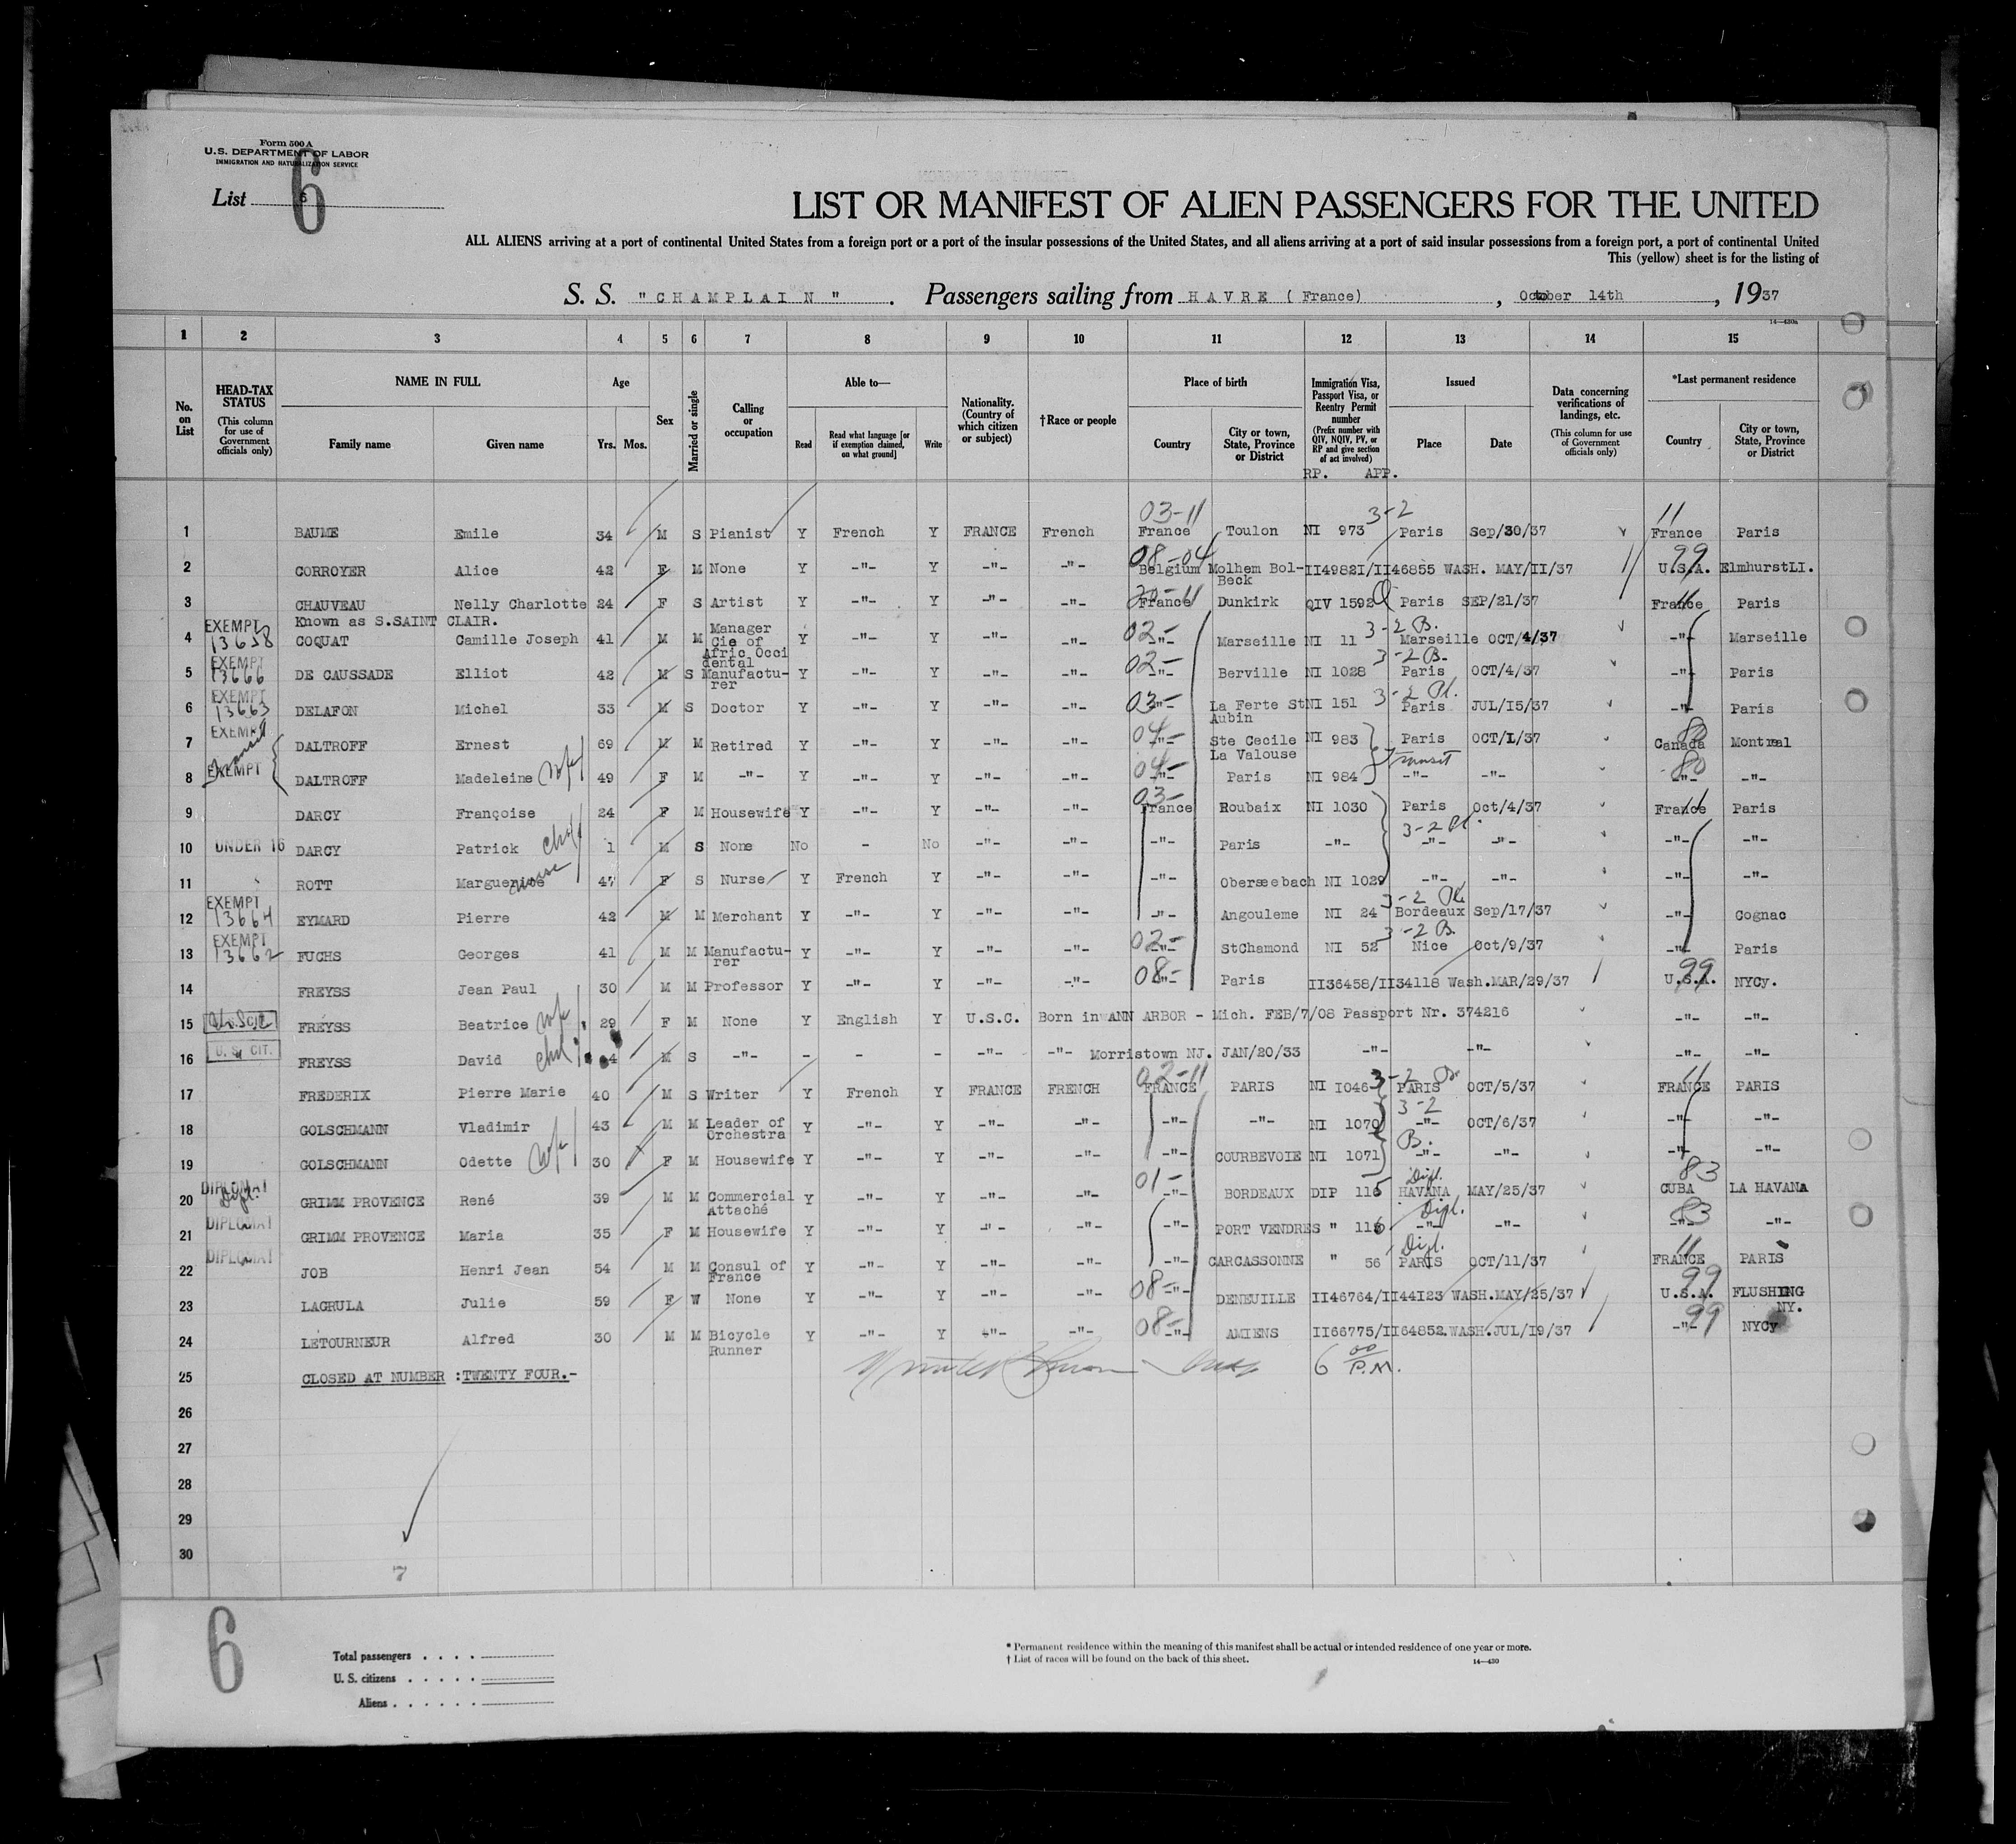 Form 500 A
U.S. DEPARTMENT OF LABOR
IMMIGRATION AND NATURALIZATION SERVICE
List 6
6
LIST OR MANIFEST OF ALIEN PASSENGERS FOR THE UNITED
ALL ALIENS arriving at a port of continental United States from a foreign port or a port of the insular possessions of the United States, and all aliens arriving at a port of said insular possessions from a foreign port, a port of continental United
This (yellow) sheet is for the listing of
S. S. "CHAMPLAIN". Passengers sailing from HAVRE (France), October 14th, 1937
14—430a
1 2 3 4 5 6 7 8 9 10 11 12 13 14 15
No. on List
HEAD-TAX STATUS (This column for use of Government officials only)
NAME IN FULL Family name Given name
Age Yrs. Mos.
Sex
Married or single
Calling or occupation
Able to— Read Read what language [or if exemption claimed, on what ground] Write
Nationality. (Country of which citizen or subject)
†Race or people
Place of birth Country City or town, State, Province or District
Immigration Visa, Passport Visa, or Reentry Permit number (Prefix number with QIV, NQIV, PV, or RP and give section of act involved)
RP. APP.
Issued Place Date
Data concerning verifications of landings, etc. (This column for use of Government officials only)
*Last permanent residence Country City or town, State, Province or District
03-11 3-2 11
1 BAUME Emile 34 M S Pianist Y French Y FRANCE French France Toulon NI 973 Paris Sep/30/37 France Paris
08-04 99
2 CORROYER Alice 42 F M None Y -"- Y -"- -"- Belgium Molhem Bol-Beck II49821/II46855 WASH. MAY/II/37 U.S.A. Elmhurst LI.
3 CHAUVEAU Nelly Charlotte 24 F S Artist Y -"- Y -"- -"- France Dunkirk QIV 1592 Paris SEP/21/37 France Paris
Known as S.SAINT CLAIR.
EXEMPT 13658 02- 3-2 B.
4 COQUAT Camille Joseph 41 M M Manager Cie of Afric Occidental Y -"- Y -"- -"- -"- Marseille NI 11 Marseille OCT/4/37 -"- Marseille
EXEMPT 13666 02- 3-2 B.
5 DE CAUSSADE Elliot 42 M S Manufacturer Y -"- Y -"- -"- -"- Berville NI 1028 Paris OCT/4/37 -"- Paris
EXEMPT 13663 03- 3-2 Pl.
6 DELAFON Michel 33 M S Doctor Y -"- Y -"- -"- -"- La Ferte St Aubin NI 151 Paris JUL/15/37 -"- Paris
EXEMPT Transit 04- 80
7 DALTROFF Ernest 69 M M Retired Y -"- Y -"- -"- -"- Ste Cecile La Valouse NI 983 Paris OCT/1/37 Canada Montreal
EXEMPT 04- Transit 80
8 DALTROFF Madeleine wife 49 F M -"- Y -"- Y -"- -"- -"- Paris NI 984 -"- -"- -"- -"-
03- 11
9 DARCY Françoise 24 F M Housewife Y -"- Y -"- -"- France Roubaix NI 1030 Paris Oct/4/37 France Paris
3-2 Pl.
10 UNDER 16 DARCY Patrick 1 M S None No - No -"- -"- -"- Paris -"- -"- -"- -"- -"-
11 ROTT Marguerite nurse 47 F S Nurse Y French Y -"- -"- -"- Oberseebach NI 1029 -"- -"- -"- -"-
EXEMPT 13664 3-2 Pl.
12 EYMARD Pierre 42 M M Merchant Y -"- Y -"- -"- -"- Angouleme NI 24 Bordeaux Sep/17/37 -"- Cognac
EXEMPT 13662 02- 3-2 B.
13 FUCHS Georges 41 M M Manufacturer Y -"- Y -"- -"- -"- StChamond NI 52 Nice Oct/9/37 -"- Paris
08- 99
14 FREYSS Jean Paul 30 M M Professor Y -"- Y -"- -"- -"- Paris II36458/II34118 Wash.MAR/29/37 U.S.A. NYCy.
15 FREYSS Beatrice wife 29 F M None Y English Y U.S.C. Born in ANN ARBOR - Mich. FEB/7/08 Passport Nr. 374216 -"- -"-
U. S. CIT.
16 FREYSS David 4 M S -"- - - - -"- -"- Morristown NJ. JAN/20/33 -"- -"- -"- -"-
02-11 3-2 11
17 FREDERIX Pierre Marie 40 M S Writer Y French Y FRANCE FRENCH FRANCE PARIS NI 1046 PARIS OCT/5/37 FRANCE PARIS
3-2
18 GOLSCHMANN Vladimir 43 M M Leader of Orchestra Y -"- Y -"- -"- -"- -"- NI 1070 -"- OCT/6/37 -"- -"-
B.
19 GOLSCHMANN Odette wife 30 F M Housewife Y -"- Y -"- -"- -"- COURBEVOIE NI 1071 -"- -"- -"- -"-
DIPLOMAT Dipl. 01- Dipl. 83
20 GRIMM PROVENCE René 39 M M Commercial Attaché Y -"- Y -"- -"- -"- BORDEAUX DIP 115 HAVANA MAY/25/37 CUBA LA HAVANA
DIPLOMAT Dipl. 83
21 GRIMM PROVENCE Maria 35 F M Housewife Y -"- Y -"- -"- -"- PORT VENDRES " 116 -"- -"- -"- -"-
DIPLOMAT Dipl. 11
22 JOB Henri Jean 54 M M Consul of France Y -"- Y -"- -"- -"- CARCASSONNE " 56 PARIS OCT/11/37 FRANCE PARIS
08- 99
23 LAGRULA Julie 59 F W None Y -"- Y -"- -"- -"- DENEUILLE II46764/II44123 WASH.MAY/25/37 U.S.A. FLUSHING NY.
08- 99
24 LETOURNEUR Alfred 30 M M Bicycle Runner Y -"- Y -"- -"- -"- AMIENS II66775/II64852.WASH.JUL/19/37 -"- NYCy
25 CLOSED AT NUMBER :TWENTY FOUR.- 6 00 P.M.
26
27
28
29
30
7
6
Total passengers . . . .
U. S. citizens . . . . .
Aliens . . . . . .
* Permanent residence within the meaning of this manifest shall be actual or intended residence of one year or more.
† List of races will be found on the back of this sheet.
14—430